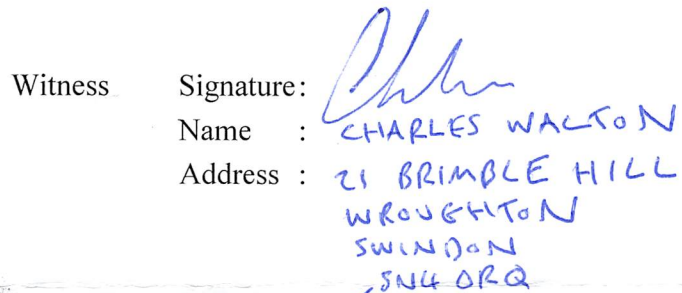 Witness Signature:
Name : CHARLES WALTON
Address : 21 BRIMBLE HILL
WROUGHTON
SWINDON
SN4 0RQ